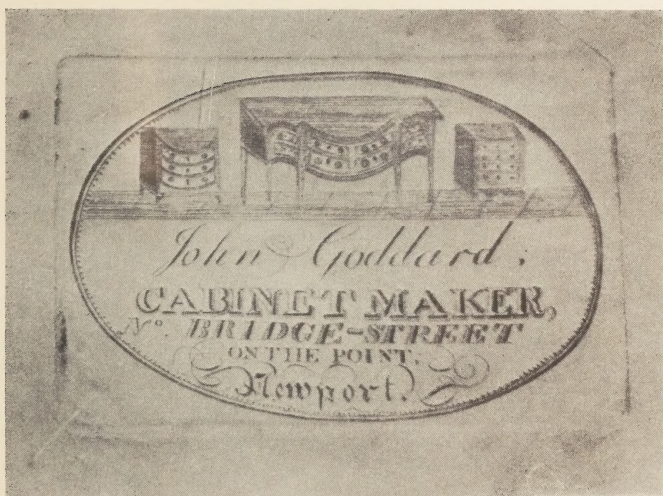 John Goddard;
CABINET MAKER,
No. BRIDGE-STREET
ON THE POINT,
Newport.